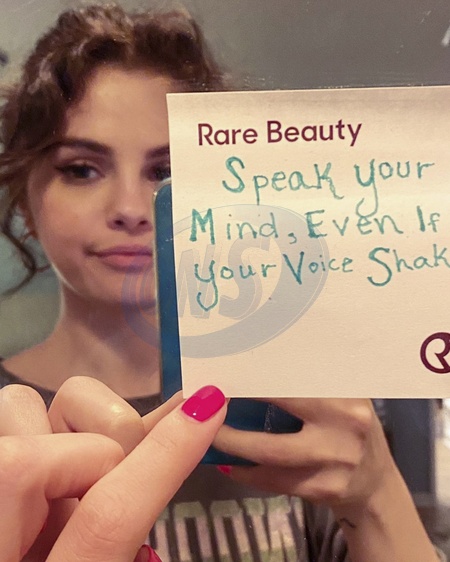 Rare Beauty
Speak your
Mind, Even If
your Voice Shak
R